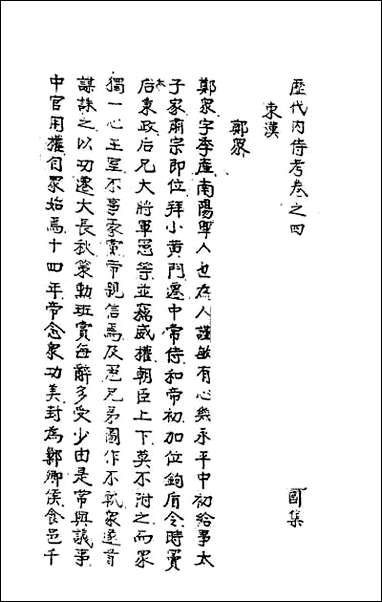 歷代内侍考卷之四
集
東漢
鄭眾
鄭眾字季產南陽犨人也為人謹敏有心幾永平中初給事太
子家肅宗即位拜小黃門遷中常侍和帝初加位鉤盾令時竇
太后秉政后兄大將軍憲等並竊威權朝臣上下莫不附之而眾
獨一心王室不事豪黨帝親信焉及憲兄弟圖作不軌眾遂首
謀誅之以功遷大長秋策勳班賞每辭多受少由是常與議事
中官用權自眾始焉十四年帝念眾功美封為鄛鄉侯食邑千